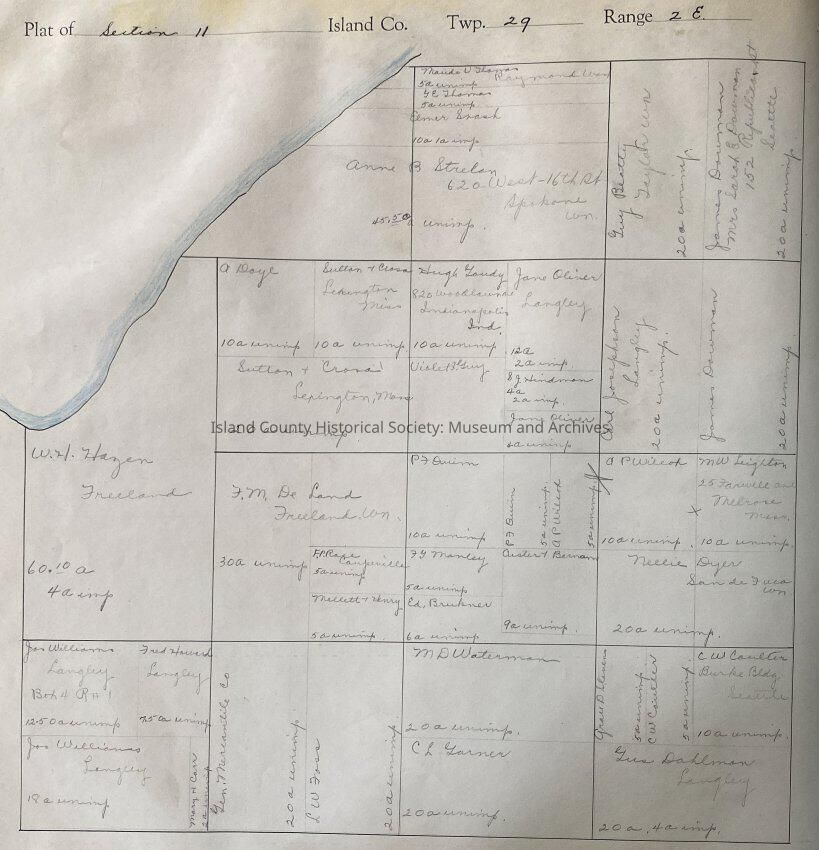 Plat of Section 11 Island Co. Twp. 29 Range 2 E.
Maude V Thomas
5a unimp
G E Thomas
5a unimp
Raymond Wn
Elmer Brash
10a 1a imp.
Anne B Strelan
620 West-16th St
Spokane
Wn.
45.50a unimp.
Guy Beatty
Taylor Wn
20a unimp.
James Dowman
Mrs Sarah E Dowman
152 Republican St
Seattle
20a unimp.
A Doyl
10a unimp
Sutton + Cross
Lexington
Miss
10a unimp.
Hugh Goudy
820 Woodlawn
Indianapolis
Ind.
10a unimp
Jane Oliver
Langley
12a
2a imp.
S J Hindman
4a
2a imp.
Jane Oliver
4a unimp
Carl Josephson
Langley
20a unimp.
James Dowman
20a unimp.
Sutton + Cross
Lexington, Mass
unimp.
Violet B. Guy
Island County Historical Society: Museum and Archives
W. H. Hazen
Freeland
60.10 a
4a imp
F. M. De Land
Freeland. Wn.
30a unimp
F.P. Race
Coupeville
5a unimp
Millett + Henry
5a unimp.
P F Quinn
10a unimp.
P F Quinn
5a unimp.
A P Wilcox
5a unimp
F G Manley
5a unimp
Ed. Bruckner
6a unimp
Custer + Bernard
9a unimp.
A P Wilcox
10a unimp.
M W Leighton
25 Farwell ave
Melrose
Mass.
X
10a unimp.
Nellie Dyer
San de Fuca
Wn
20a unimp.
Jos Williams
Langley
Box 4 R # 1
12.50a unimp
Fred Howard
Langley
7.50a unimp
Jos Williams
Langley
18a unimp
Mary H Carr
2a unimp
Gen. Mercantile Co
20a unimp
L W Foss
20a unimp
M D Waterman
20a unimp.
C L Garner
20a unimp.
Grace D Stevens
5a unimp
C W Coulter
5a unimp
C W Coulter
Burke Bldg
Seattle
10a unimp.
Gus Dahlman
Langley
20a. 4a imp.